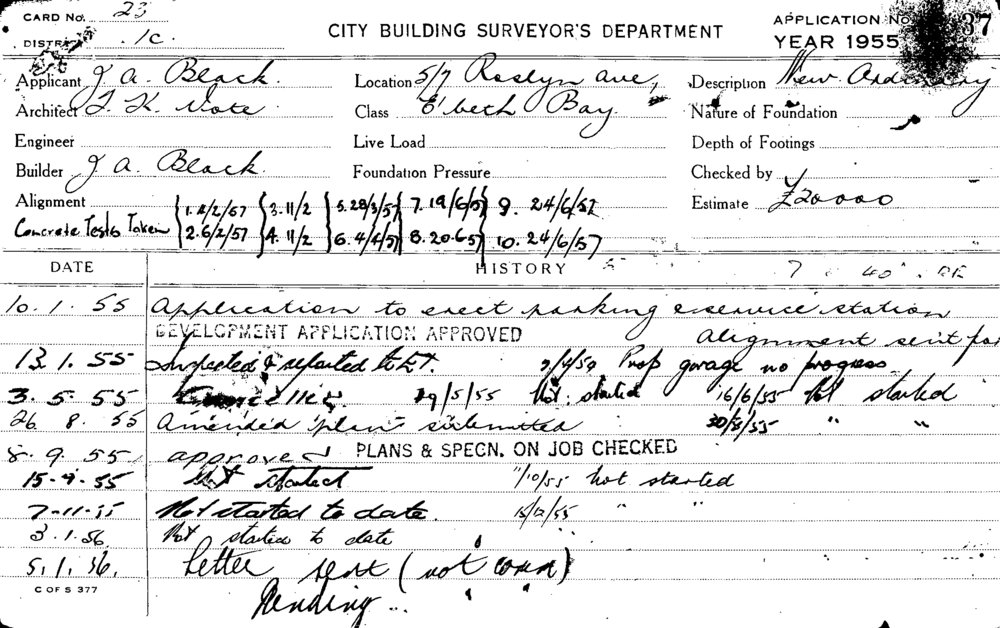 CARD No. 23
CITY BUILDING SURVEYOR'S DEPARTMENT
APPLICATION No. 37
DISTRICT 1c.
YEAR 1955
Applicant J A. Black.
Location 5/7 Roslyn ave,
Description New
Architect
Class E'beth Bay
Nature of Foundation
Engineer
Live Load
Depth of Footings
Builder J A. Black.
Foundation Pressure
Checked by
Alignment
Estimate £20000
Concrete Tests Taken
1. 2/2/57 3. 11/2 5. 28/3/57 7. 19/6/57 9. 24/6/57
2. 6/2/57 4. 11/2 6. 4/4/57 8. 20.6.57 10. 24/6/57
DATE HISTORY
10.1.55 Application to erect parking & service station
DEVELOPMENT APPLICATION APPROVED Alignment sent for
13.1.55 Inspected & reported to E.T. Prop garage no progress.
3.5.55 19/5/55 Not started 16/6/55 Not started
26 8.55 Amended plan submitted 30/8/55 " "
8.9.55 approved PLANS & SPECN. ON JOB CHECKED
15-9-55 Not started 11/10/55 not started
7-11-55 Not started to date. 15/12/55 " "
3.1.56 Not started to date
5.1.56. Letter sent (not
C OF S 377
Pending..